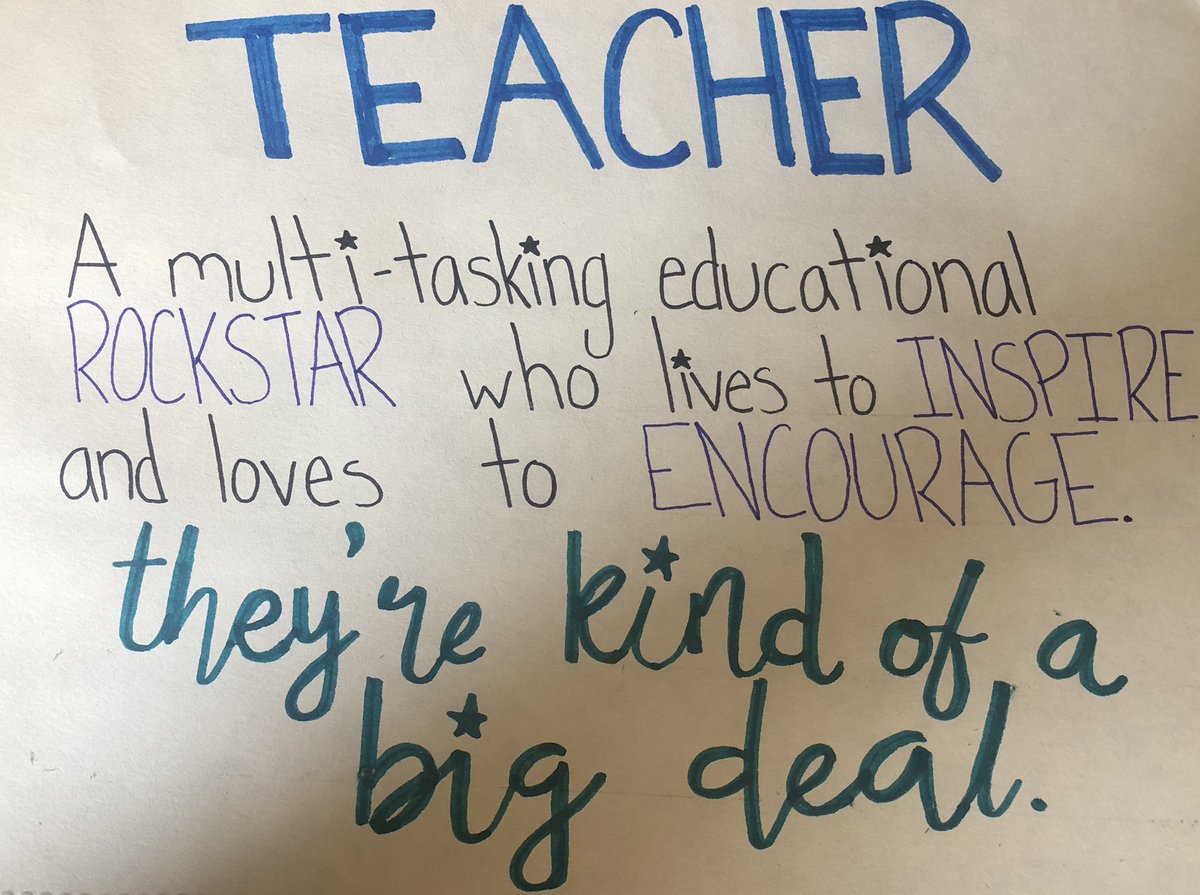 TEACHER
A multi-tasking educational
ROCKSTAR who lives to INSPIRE
and loves to ENCOURAGE.
they're kind of a
big deal.